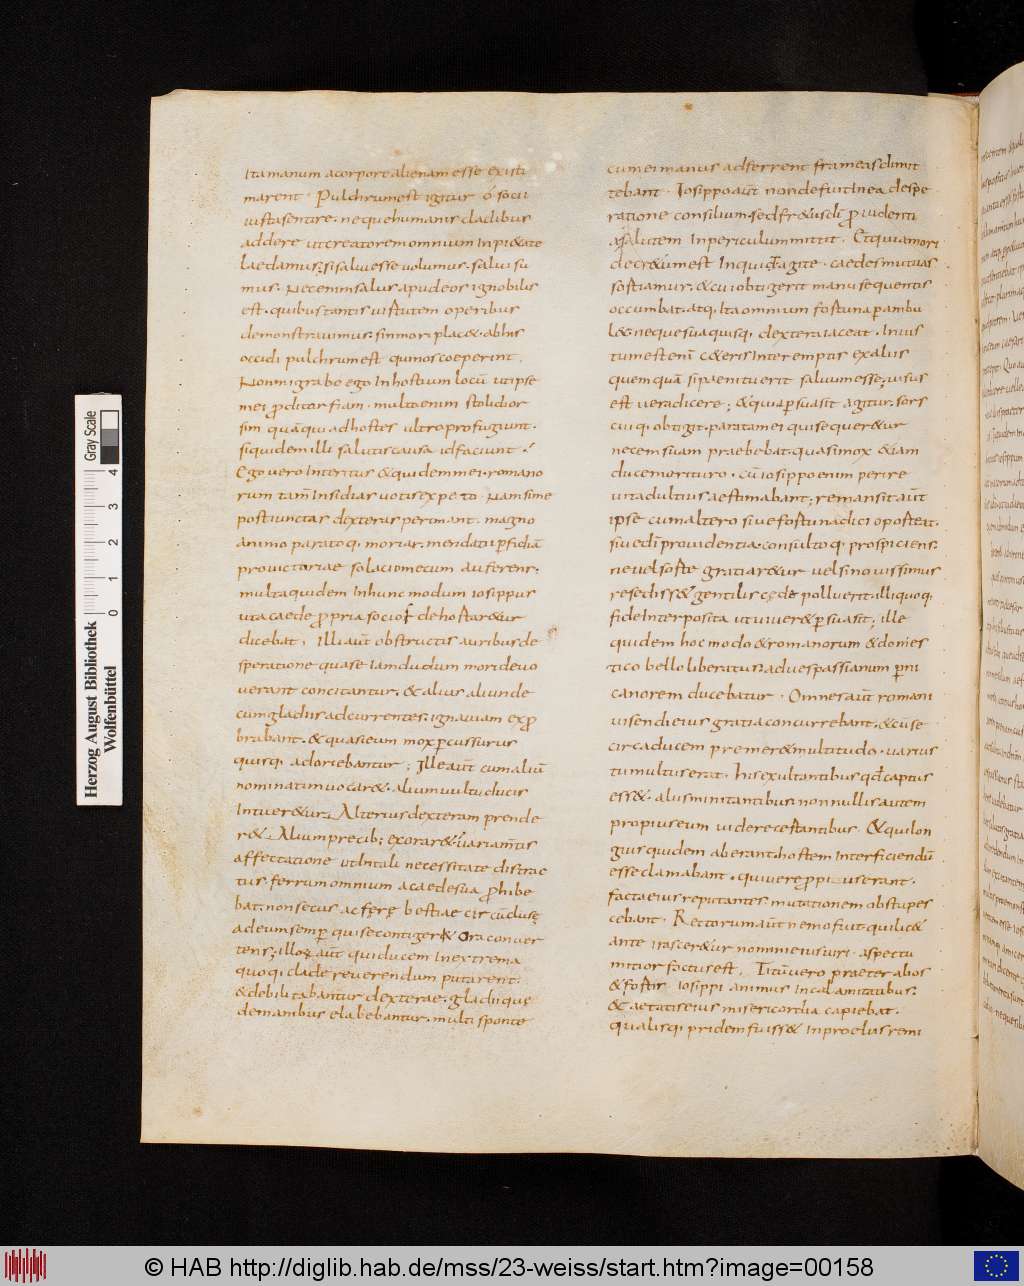 Ita manum a corpore alienam esse existi
marent · Pulchrum est igitur ó socii
iusta sentire. neque humanis cladibus
addere ut creatorem omnium inpi&ate
laedamus; si salui esse uolumus. salui si
mus. Nec enim salus apud eos ignobilis
est. quibus tantis uirtutem operibus
demonstrauimus. sin mori plac&. ab his
occidi pulchrum est qui nos coeperint.
Non migrabo ego in hostium locū ut ipse
mei proditor fiam. multo enim stolidior
sim quā qui ad hostes ultro profugiunt.
siquidem illi salutis causa id faciunt.
Ego uero interitus & quidem mei. romano
rum tam̄ insidias uotis expeto. Nam si me
post iunctas dexteras perimant. magno
animo paratoq; moriar. mendatii ꝑfidiā
pro uictoriae solacio mecum auferens;
multa quidem in hunc modum iosippus
uita caede propria socios dehortar&ur
dicebat. Illi aūt obstructis auribus de
speratione quasi iamdudum morti deuo
uerant concitantur. & alius aliunde
cum gladiis adcurrentes. ignauiam expro
brabant. & quasi eum mox ꝑcussurus
quisq; adoriebantur; Ille aūt cum aliū
nominatim uocar&. alium uultu ducis
intuer&ur. Alterius dexteram prende
r&. Alium precib; exorar& uariam̄tis
affectatione ut in tali necessitate distrac
tus. ferrum omnium a caede sua prohibe
bat. non secus ac ferę bestiae circūclusę
ad eum semꝑ qui se contiger& ora conuer
tens; illoꝝ aūt qui ducem in extrema
quoq; clade reuerendum putarent.
& debilitabantur dexterae. gladiique
de manibus elabebantur. multi sponte
cum ei manus adferrent frameas dimit
tebant. Iosippo aūt non defuit in ea despe
ratione consilium. sed fr&us dī prouidenti
a salutem in periculum mittit. Et quia mori
decr&um est inquid agite. caedes mutuas
sortiamur. & cui obtigerit manu sequentis
occumbat. atq; ita omnium fortuna ꝑambu
l&. neque sua quisq; dextera iaceat. Inius
tum est enī c&eris interemptis ex aliis
quemquā si paenituerit saluum esse; uisus
est uera dicere; & quia ꝑsuasit agitur. sors
cuiq; obtigit. parata mei qui sequer&ur
necem suam praebebat. quasi mox &iam
duce morituro. cū iosippo enim perire
uita dultius aestimabant; remansit aūt
ipse cum altero siue fortuna dici oporteat.
siue dī prouidentia. consultoq; prospiciens.
ne uel sorte gratiar&ur uel si nouissimus
resediss& gentilis cęde polluerit. illi quoq;
fide interposita ut uiuer& ꝑsuasit; ille
quidem hoc modo & romanorum & domes
tico bello liberatus. ad uespassianum ꝑni
canorem ducebatur. Omnes aūt romani
uisendi eius gratia concurrebant. & cū se
circa ducem premer& multitudo. uarius
tumultus erat. his exultantibus qđ captus
ess&. aliis minitantibus. nonnullis autem
propius eum uidere certantibus. & qui lon
gius quidem aberant. hostem interficiendū
esse clamabant. qui uero propius erant.
facta eius reputantes. mutationem obstupes
cebant. Rectorum aūt nemo fuit qui lic&
ante irascer&ur non in eius uiri aspectu
mitior factus est. Titū uero praeter alios
& fortis iosippi animus in calamitatibus.
& aetatis eius misericordia capiebat.
qualisq; pridem fuiss& in proeliis remi
Herzog August Bibliothek
Wolfenbüttel
Gray Scale
0 1 2 3 4
© HAB http://diglib.hab.de/mss/23-weiss/start.htm?image=00158